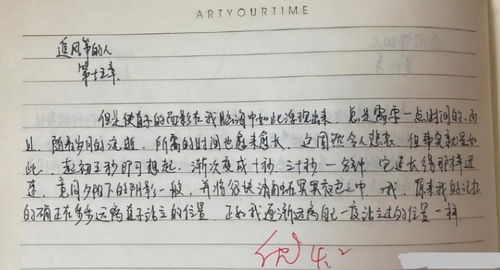 ARTYOURTIME
追风筝的人
第十五章
但是使直子的面影在我脑海中如此浮现出来 总是需要一点时间的,而
且,随着岁月的流逝,所需的时间也愈来愈长,这固然令人悲哀,但事实就是如
此,起初五秒即可想起,渐次变成十秒,三十秒,一分钟,它延长得那样迅
速,竟同夕阳下的阴影一般,并将融消在冥冥夜色之中。哦,原来我的记忆
的确正在步步远离直子站立的位置,正如我逐渐远离自己一度站立过的位置一样。